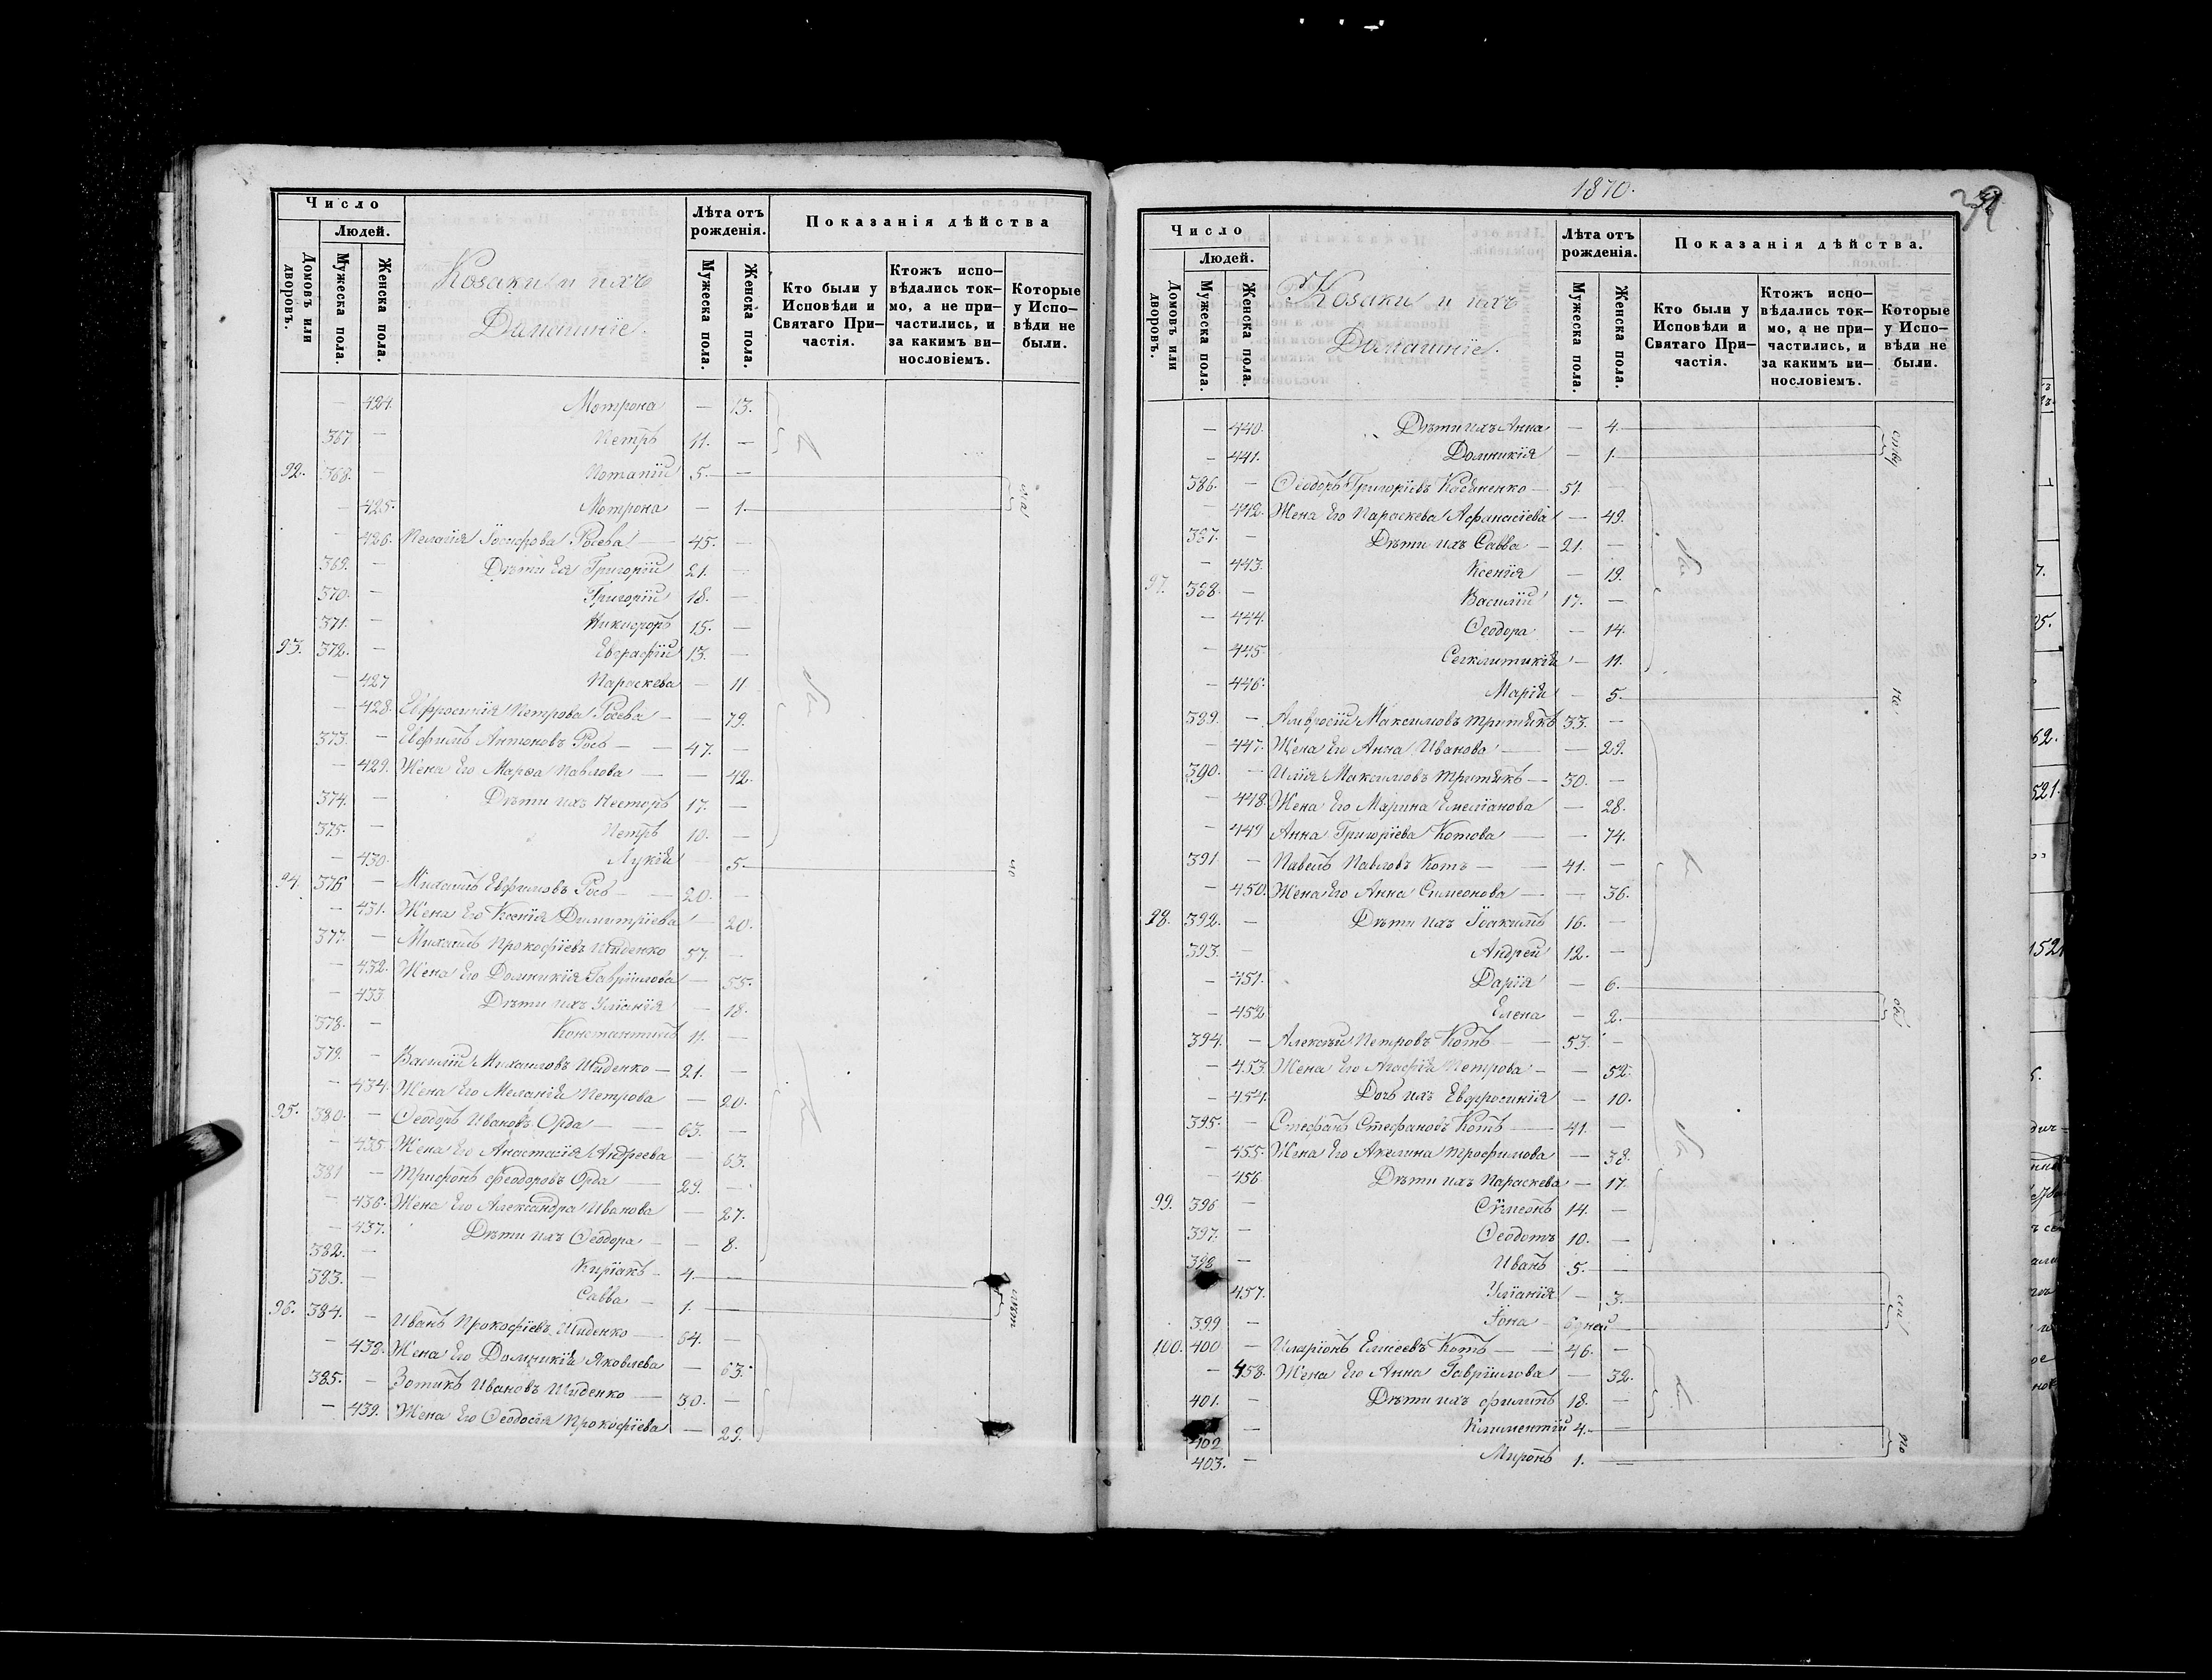 Число
Людей.
Домовъ или дворовъ.
Мужеска пола.
Женска пола.
Козаки и ихъ
Домашніе.
Лѣта отъ рожденія.
Мужеска пола.
Женска пола.
Показанія дѣйства
Кто были у Исповѣди и Святаго При-частія.
Ктожъ испо-вѣдались ток-мо, а не при-частились, и за какимъ ви-нословіемъ.
Которые у Испо-вѣди не были.
— 424. Мотрона — 13.
367 — Петръ 11. —
92. 368. — Потапій 5. —
— 425. Мотрона — 1.
— 426. Пелагія Іосифова Росева 45. —
369. — Дѣти Ея Григорій 21. —
370. — Григорій 18. —
371. — Никифоръ 15. —
93. 372. — Евграфій 13. —
— 427 Параскева — 11
— 428. Евфросинія Петрова Росева — — 79.
373. — Евфимъ Антоновъ Росъ — — 47. —
— 429. Жена Его Марѳа Павлова — — 42.
374. — Дѣти ихъ Несторъ 17. —
375. — Петръ 10. —
— 430. Лукія 5.
94. 376 — Михаилъ Евфимовъ Росъ — — 20. —
— 431. Жена Его Ксенія Димитріева — 20.
377. — Михаилъ Прокофіевъ Шиденко 57. —
— 432. Жена Его Домникія Гавріилова — 55.
— 433 Дѣти ихъ Уліанія — 18.
378. — Константинъ 11. —
379. — Василій Михаиловъ Шиденко — 21. —
— 434. Жена Его Меланія Петрова — 20.
95. 380. — Ѳеодоръ Ивановъ Орда — — 63. —
— 435. Жена Его Анастасія Андреева — 63.
381 — Трифонъ Феодоровъ Орда — 29. —
— 436. Жена Его Александра Иванова — 27.
— 437. Дѣти ихъ Ѳеодора — — 8.
382. — Киріакъ — 4. —
383. — Савва — 1. —
96. 384. — Иванъ Прокофіевъ Шиденко — 64. —
— 438. Жена Его Домникія Яковлева — 63.
385. — Зотикъ Ивановъ Шиденко — 30. —
— 439. Жена Его Ѳеодосія Прокофіева — 29.
1870.
Число
Людей.
Домовъ или дворовъ.
Мужеска пола.
Женска пола.
Козаки и ихъ
Домашніе.
Лѣта отъ рожденія.
Мужеска пола.
Женска пола.
Показанія дѣйства.
Кто были у Исповѣди и Святаго При-частія.
Ктожъ испо-вѣдались ток-мо, а не при-частились, и за какимъ ви-нословіемъ.
Которые у Испо-вѣди не были.
— 440. Дѣти ихъ Анна — 4.
— 441. Домникія — 1.
386. — Ѳеодоръ Григоріевъ Касяненко — 51. —
— 442. Жена Его Параскева Афанасіева — 49.
387. — Дѣти ихъ Савва — 21. —
— 443. Ксенія — 19.
97. 388. — Василій 17. —
— 444. Ѳеодора — 14.
— 445. — 11.
— 446. Марія — 5.
389. — Амвросій Максимовъ 33. —
— 447. Жена Его Анна Иванова — — 29.
390. — Илія Максимовъ — 30. —
— 448. Жена Его Марина Емеліанова — 28.
— 449 Анна Григоріева Котова — — 74.
391 — Павелъ Павловъ Котъ — — 41. —
— 450. Жена Его Анна Симеонова — — 36.
98. 392. — Дѣти ихъ Іоакимъ 16. —
393. — Андрей 12. —
— 451. Дарія — 6.
— 452 Елена — 2.
394. — Алексѣй Петровъ Котъ — 53. —
— 453. Жена Его Агафія Петрова — — 52.
— 454. Дочь ихъ Евфросинія — 10.
395. — Стефанъ Стефановъ Котъ — 41. —
— 455. Жена Его Акилина Трофимова — 38.
— 456 Дѣти ихъ Параскева — 17.
99. 396 — Сѵмеонъ 14. —
397. — Ѳеодотъ 10. —
398 — Иванъ 5. —
457. Уліанія — 3.
399 — Іона — 6 дней
100. 400 — Иларіонъ Елисеевъ Котъ — — 46. —
— 458. Жена Его Анна Гавріилова — 32.
401. — Дѣти ихъ Филипъ 18. —
402 — Климентій 4. —
403. — Миронъ 1. —